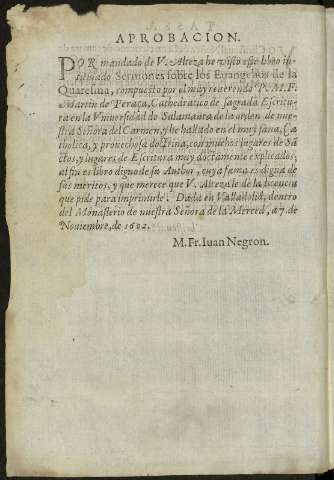 APROBACION.
POR mandado de V. Alteza he visto este libro in-
titulado Sermones sobre los Euangelios de la
Quaresma, compuesto por el muy reuerendo P. M. F.
Martin de Peraça, Cathedratico de sagrada Escritu-
ra en la Vniuersidad de Salamanca de la orden de nue-
stra Señora del Carmen, y he hallado en el muy sana, Ca-
tholica, y prouechosa doctrina, con muchos lugares de Sã
ctos, y lugares de Escritura muy doctamente explicados;
al fin es libro digno de su Author, cuya fama es digna de
sus meritos, y que merece que V. Alteza le de la licencia
que pide para imprimirle. Dada en Valladolid, dentro
del Monasterio de nuestra Señora de la Merced, a 7. de
Nouiembre, de 1602.
M. Fr. Iuan Negron.